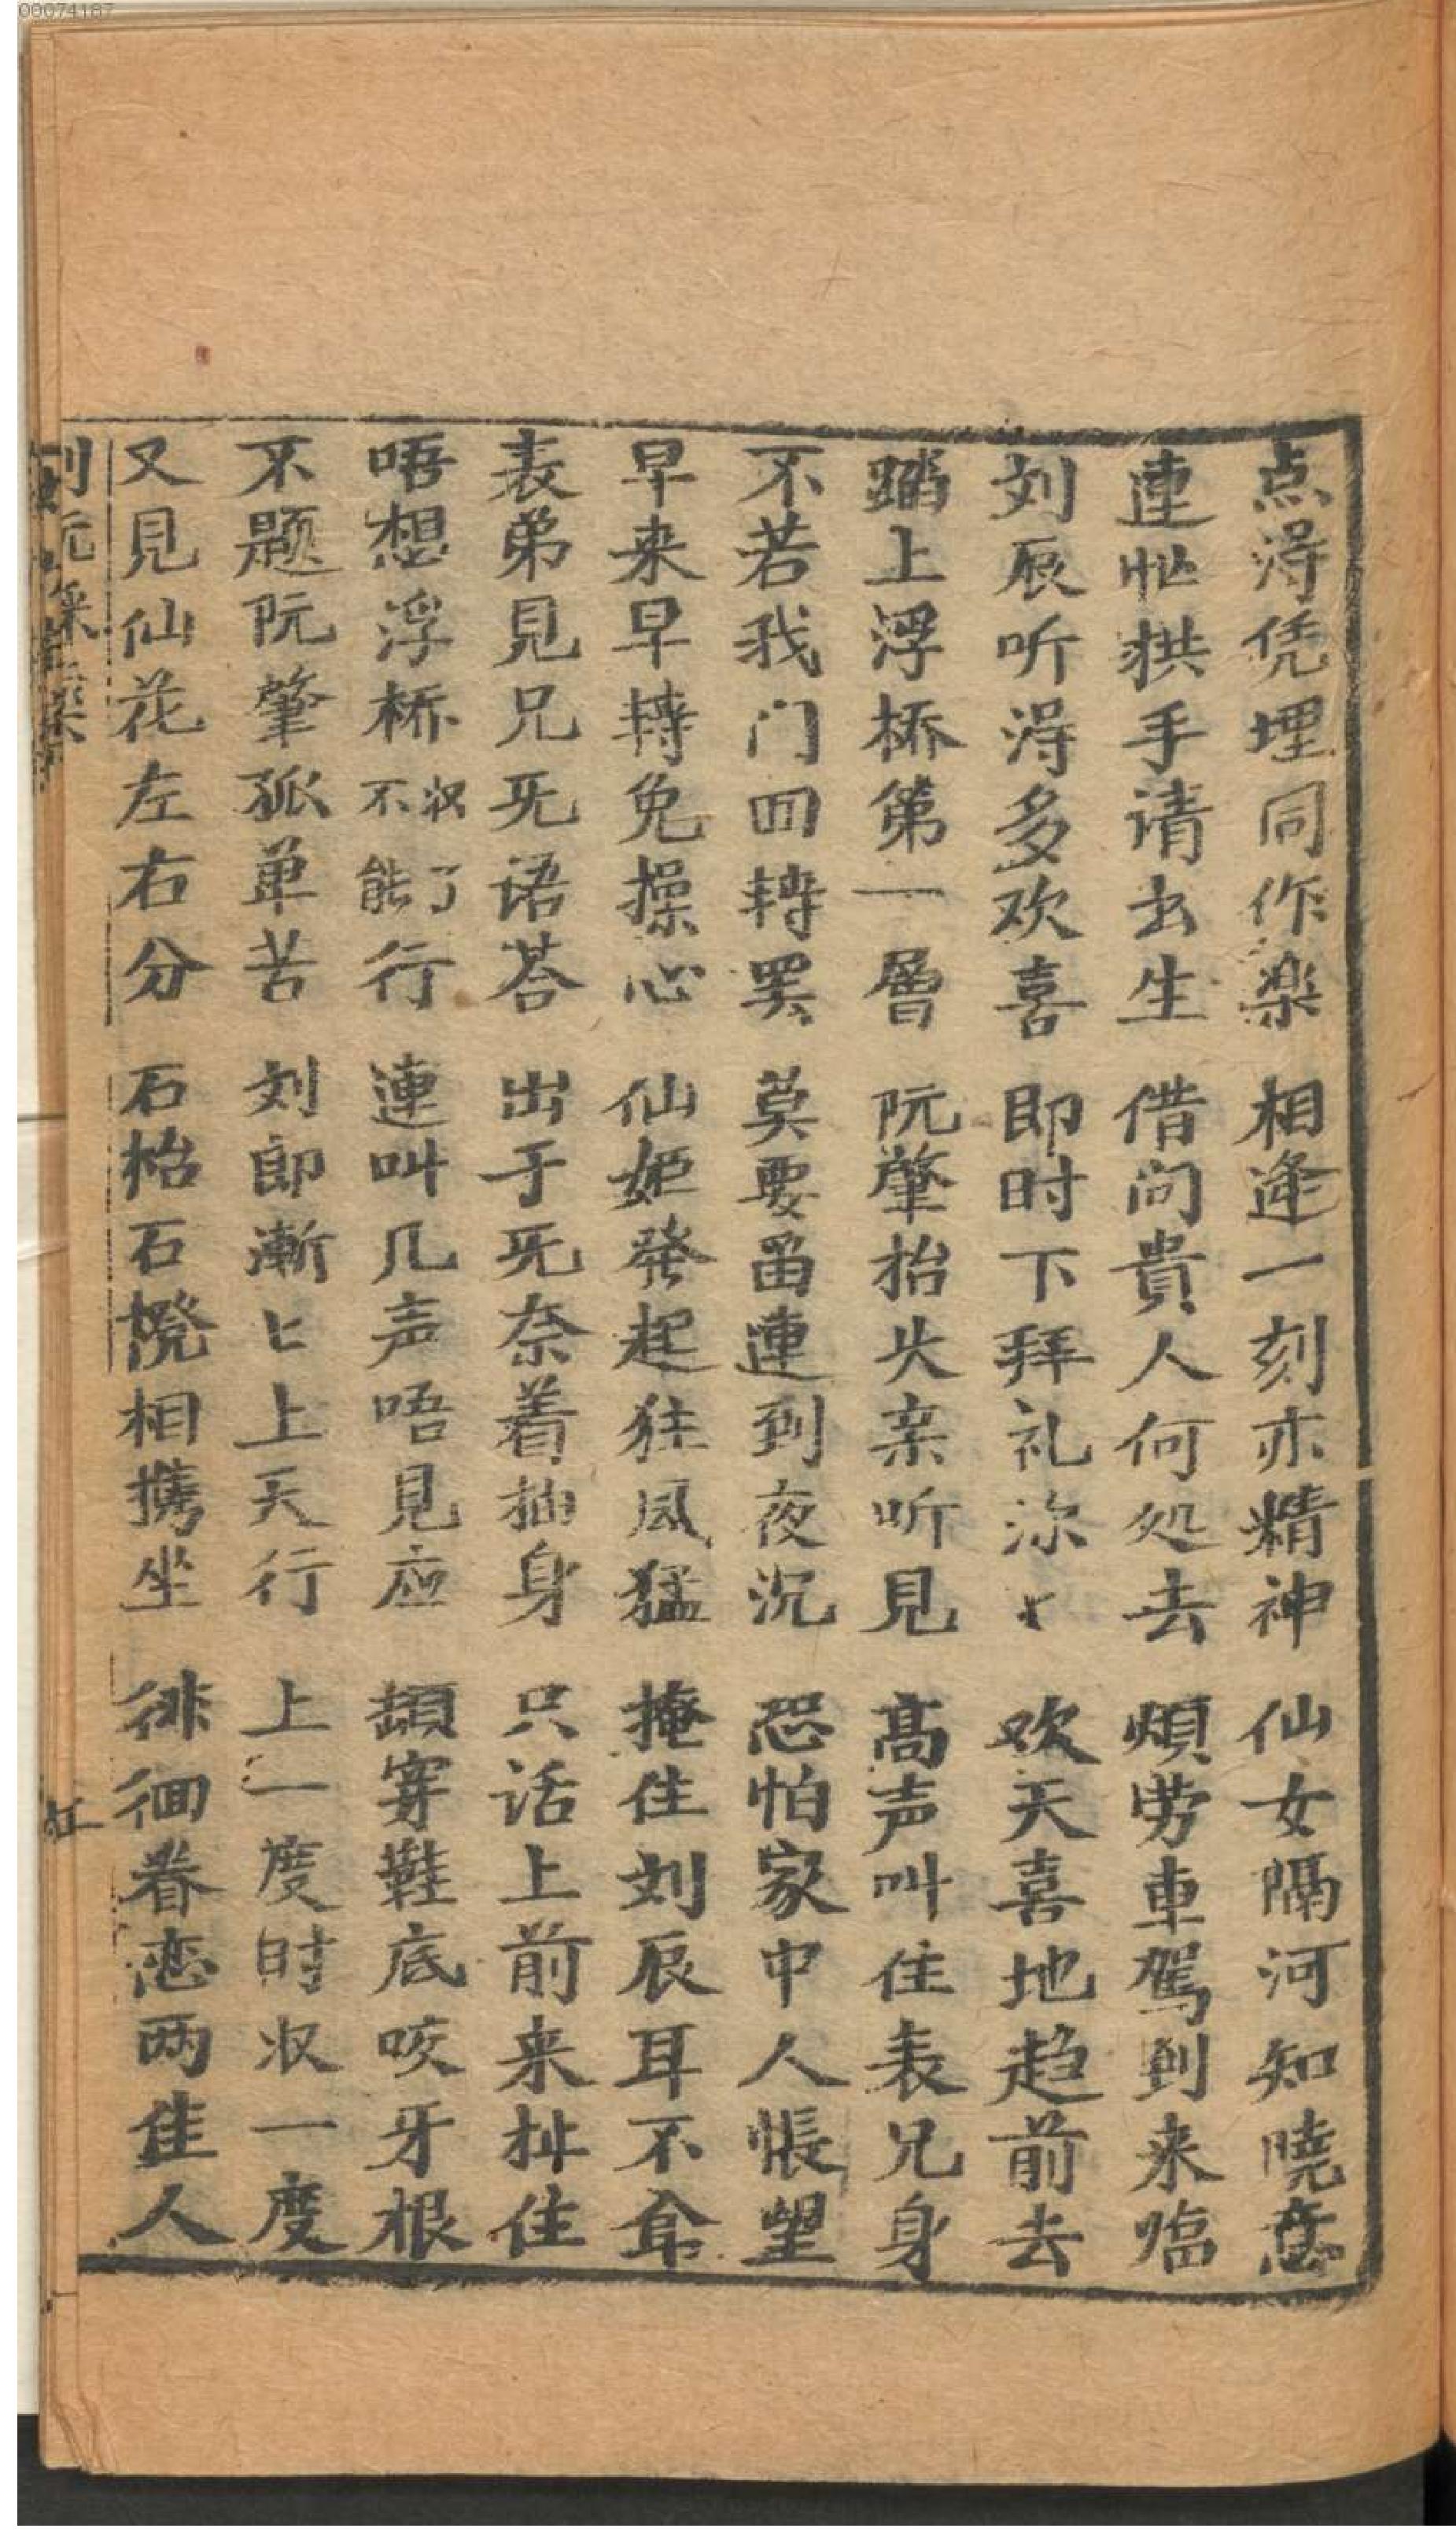 00074187
点淂凭埋同作楽 相逢一刻亦精神 仙女隔河知曉意
連忙拱手请玄生 借问貴人何处去 煩劳車駕到来临
刘辰听淂多欢喜 即时下拜礼深〻 欢天喜地趋前去
踏上浮桥第一層 阮肇抬头亲听見 髙声叫住表兄身
不若我门回转罢 莫要畱連到夜沉 恐怕家中人悵望
早来早转免操心 仙姬発起狂风猛 掩住刘辰耳不
表弟見兄旡语荅 出于旡奈着抽身 只话上前来扯住
唔想浮桥收了不能行 連叫几声唔見应 頓穿鞋底咬牙根
不题阮肇孤单苦 刘郎漸〻上天行 上一度时收一度
又見仙花左右分 石枱石櫈相携坐 徘徊眷恋两佳人